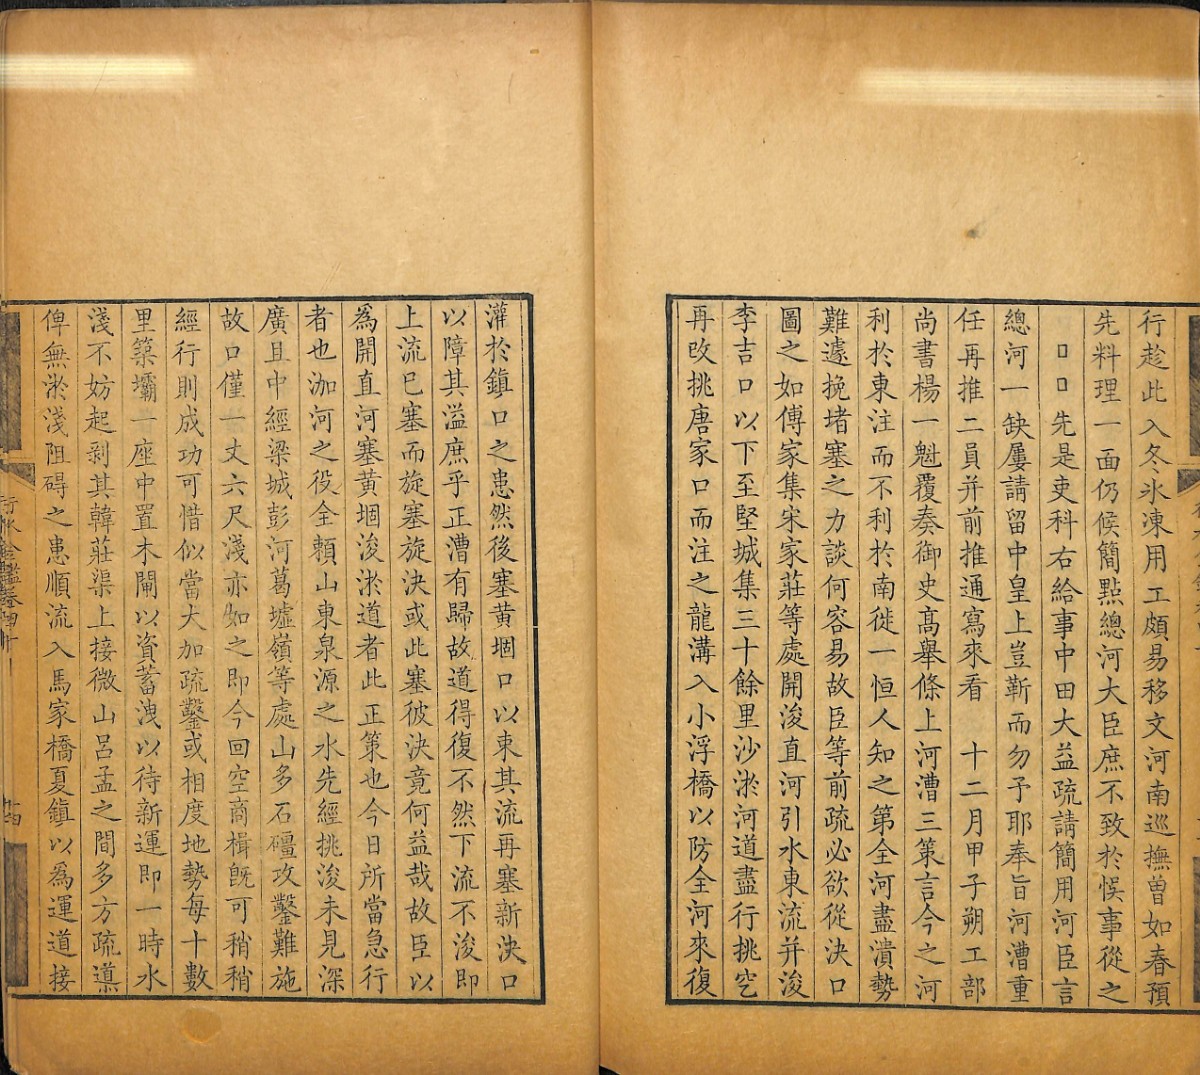 行趁此入冬氷凍用工頗易移文河南巡撫曾如春預
先料理一面仍候簡點總河大臣庶不致於悮事從之
□□先是吏科右給事中田大益疏請簡用河臣言
總河一缺屢請留中皇上豈靳而勿予耶奉旨河漕重
任再推二員并前推通寫來看　十二月甲子朔工部
尚書楊一魁覆奏御史高舉條上河漕三策言今之河
利於東注而不利於南徙一恒人知之第全河盡潰勢
難遽挽堵塞之力談何容易故臣等前疏必欲從決口
圖之如傅家集宋家莊等處開浚直河引水東流并浚
李吉口以下至堅城集三十餘里沙淤河道盡行挑空
再改挑唐家口而注之龍溝入小浮橋以防全河來復
灌於鎮口之患然後塞黄堌口以東其流再塞新決口
以障其溢庶乎正漕有歸故道得復不然下流不浚即
上流已塞而旋塞旋決或此塞彼決竟何益哉故臣以
爲開直河塞黄堌浚淤道者此正策也今日所當急行
者也泇河之役全賴山東泉源之水先經挑浚未見深
廣且中經梁城彭河葛墟嶺等處山多石礓攻鑿難施
故口僅一丈六尺淺亦如之即今回空商楫旣可稍稍
經行則成功可惜似當大加疏鑿或相度地勢每十數
里築壩一座中置木閘以資蓄洩以待新運即一時水
淺不妨起剥其韓莊渠上接微山呂孟之間多方疏導
俾無淤淺阻碍之患順流入馬家橋夏鎮以爲運道接
行水金鑑卷四十